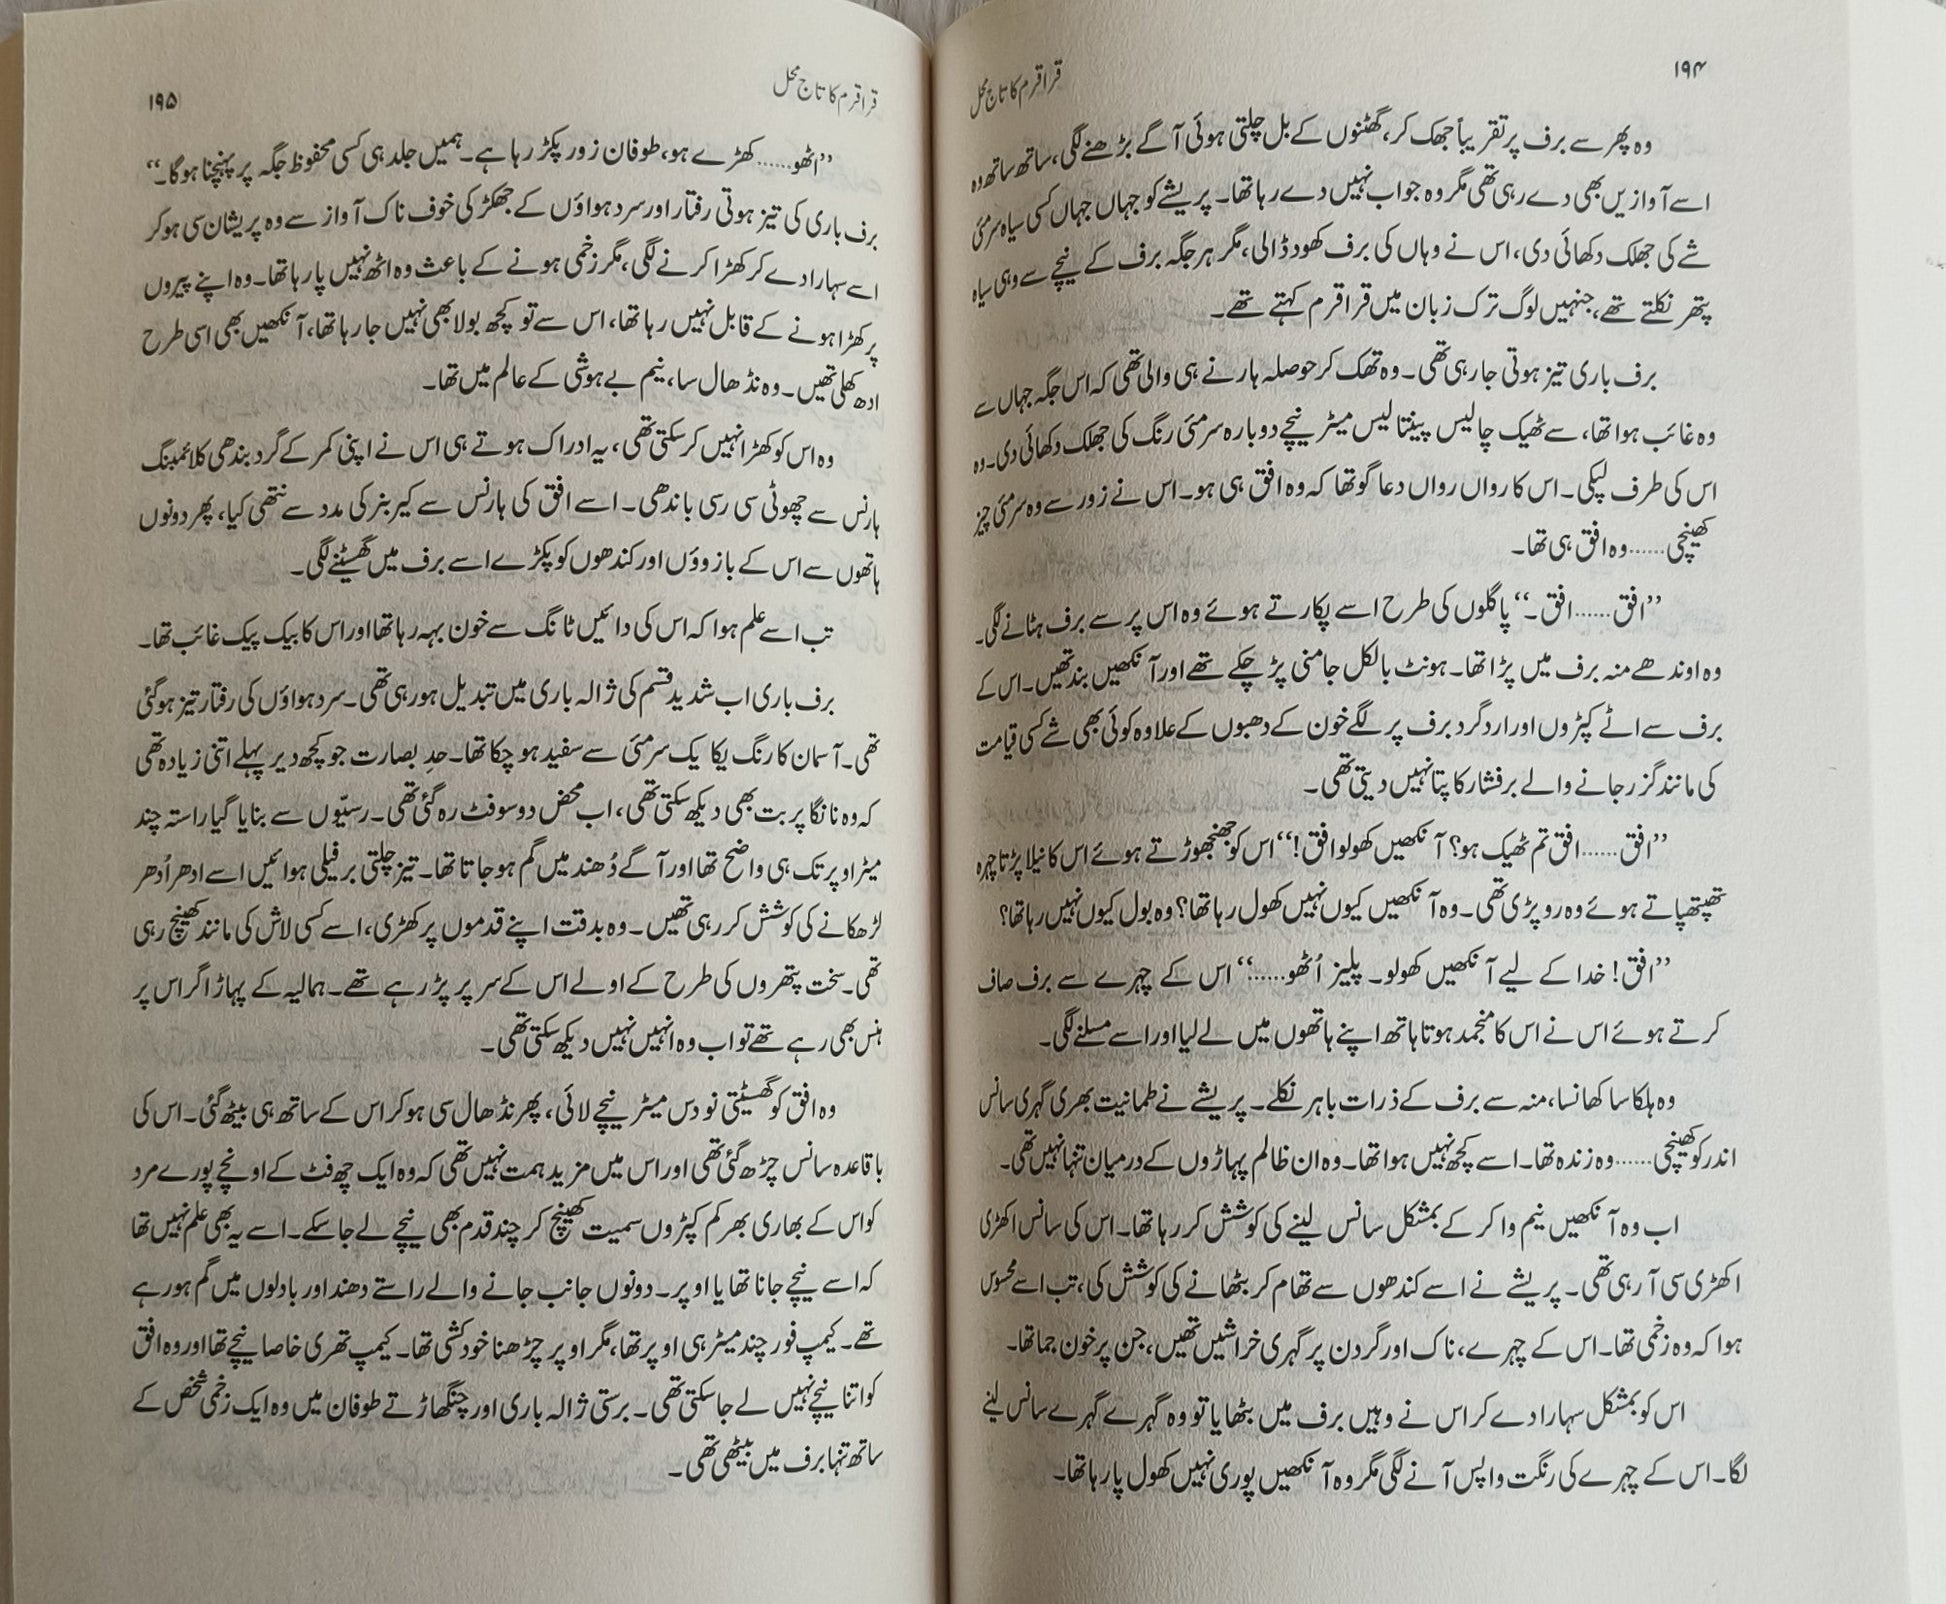 ۱۹۴
قراقرم کا تاج محل
وہ پھر سے برف پر تقریباً جھک کر، گھٹنوں کے بل چلتی ہوئی آگے بڑھنے لگی، ساتھ ساتھ وہ
اسے آوازیں بھی دے رہی تھی مگر وہ جواب نہیں دے رہا تھا۔ پریشے کو جہاں جہاں کسی سیاہ سرمئی
شے کی جھلک دکھائی دی، اس نے وہاں کی برف کھود ڈالی، مگر ہر جگہ برف کے نیچے سے وہی سیاہ
پتھر نکلتے تھے، جنہیں لوگ ترک زبان میں قراقرم کہتے تھے۔
برف باری تیز ہوتی جا رہی تھی۔ وہ تھک کر حوصلہ ہارنے ہی والی تھی کہ اس جگہ جہاں سے
وہ غائب ہوا تھا، سے ٹھیک چالیس پینتالیس میٹر نیچے دوبارہ سرمئی رنگ کی جھلک دکھائی دی۔ وہ
اس کی طرف لپکی۔ اس کا رواں رواں دعا گو تھا کہ وہ افق ہی ہو۔ اس نے زور سے وہ سرمئی چیز
کھینچی...... وہ افق ہی تھا۔
”افق...... افق۔“ پاگلوں کی طرح اسے پکارتے ہوئے وہ اس پر سے برف ہٹانے لگی۔
وہ اوندھے منہ برف میں پڑا تھا۔ ہونٹ بالکل جامنی پڑ چکے تھے اور آنکھیں بند تھیں۔ اس کے
برف سے اٹے کپڑوں اور اردگرد برف پر لگے خون کے دھبوں کے علاوہ کوئی بھی شے کسی قیامت
کی مانند گزر جانے والے برفشار کا پتا نہیں دیتی تھی۔
”افق...... افق تم ٹھیک ہو؟ آنکھیں کھولو افق!“ اس کو جھنجھوڑتے ہوئے اس کا نیلا پڑتا چہرہ
تھپتھپاتے ہوئے وہ رو پڑی تھی۔ وہ آنکھیں کیوں نہیں کھول رہا تھا؟ وہ بول کیوں نہیں رہا تھا؟
”افق! خدا کے لیے آنکھیں کھولو۔ پلیز اُٹھو......“ اس کے چہرے سے برف صاف
کرتے ہوئے اس نے اس کا منجمد ہوتا ہاتھ اپنے ہاتھوں میں لے لیا اور اسے مسلنے لگی۔
وہ ہلکا سا کھانسا، منہ سے برف کے ذرات باہر نکلے۔ پریشے نے طمانیت بھری گہری سانس
اندر کو کھینچی...... وہ زندہ تھا۔ اسے کچھ نہیں ہوا تھا۔ وہ ان ظالم پہاڑوں کے درمیان تنہا نہیں تھی۔
اب وہ آنکھیں نیم وا کر کے بمشکل سانس لینے کی کوشش کر رہا تھا۔ اس کی سانس اکھڑی
اکھڑی سی آ رہی تھی۔ پریشے نے اسے کندھوں سے تھام کر بٹھانے کی کوشش کی، تب اسے محسوس
ہوا کہ وہ زخمی تھا۔ اس کے چہرے، ناک اور گردن پر گہری خراشیں تھیں، جن پر خون جما تھا۔
اس کو بمشکل سہارا دے کر اس نے وہیں برف میں بٹھایا تو وہ گہرے گہرے سانس لینے
لگا۔ اس کے چہرے کی رنگت واپس آنے لگی مگر وہ آنکھیں پوری نہیں کھول پا رہا تھا۔
قراقرم کا تاج محل
۱۹۵
”اٹھو...... کھڑے ہو، طوفان زور پکڑ رہا ہے۔ ہمیں جلد ہی کسی محفوظ جگہ پر پہنچنا ہوگا۔“
برف باری کی تیز ہوتی رفتار اور سرد ہواؤں کے جھکڑ کی خوف ناک آواز سے وہ پریشان سی ہو کر
اسے سہارا دے کر کھڑا کرنے لگی، مگر زخمی ہونے کے باعث وہ اٹھ نہیں پا رہا تھا۔ وہ اپنے پیروں
پر کھڑا ہونے کے قابل نہیں رہا تھا، اس سے تو کچھ بولا بھی نہیں جا رہا تھا، آنکھیں بھی اسی طرح
ادھ کھلی تھیں۔ وہ نڈھال سا، نیم بے ہوشی کے عالم میں تھا۔
وہ اس کو کھڑا نہیں کر سکتی تھی، یہ ادراک ہوتے ہی اس نے اپنی کمر کے گرد بندھی کلائمبنگ
ہارنس سے چھوٹی سی رسی باندھی۔ اسے افق کی ہارنس سے کیربنر کی مدد سے نتھی کیا، پھر دونوں
ہاتھوں سے اس کے بازوؤں اور کندھوں کو پکڑے اسے برف میں گھسیٹنے لگی۔
تب اسے علم ہوا کہ اس کی دائیں ٹانگ سے خون بہہ رہا تھا اور اس کا بیک پیک غائب تھا۔
برف باری اب شدید قسم کی ژالہ باری میں تبدیل ہو رہی تھی۔ سرد ہواؤں کی رفتار تیز ہو گئی
تھی۔ آسمان کا رنگ یکایک سرمئی سے سفید ہو چکا تھا۔ حدِ بصارت جو کچھ دیر پہلے اتنی زیادہ تھی
کہ وہ نانگا پربت بھی دیکھ سکتی تھی، اب محض دو سو فٹ رہ گئی تھی۔ رسیّوں سے بنایا گیا راستہ چند
میٹر اوپر تک ہی واضح تھا اور آگے دُھند میں گم ہو جاتا تھا۔ تیز چلتی برفیلی ہوائیں اسے ادھر اُدھر
لڑھکانے کی کوشش کر رہی تھیں۔ وہ بدقت اپنے قدموں پر کھڑی، اسے کسی لاش کی مانند کھینچ رہی
تھی۔ سخت پتھروں کی طرح کے اولے اس کے سر پر پڑ رہے تھے۔ ہمالیہ کے پہاڑ اگر اس پر
ہنس بھی رہے تھے تو اب وہ انہیں نہیں دیکھ سکتی تھی۔
وہ افق کو گھسیٹتی نو دس میٹر نیچے لائی، پھر نڈھال سی ہو کر اس کے ساتھ ہی بیٹھ گئی۔ اس کی
باقاعدہ سانس چڑھ گئی تھی اور اس میں مزید ہمت نہیں تھی کہ وہ ایک چھ فٹ کے اونچے پورے مرد
کو اس کے بھاری بھرکم کپڑوں سمیت کھینچ کر چند قدم بھی نیچے لے جا سکے۔ اسے یہ بھی علم نہیں تھا
کہ اسے نیچے جانا تھا یا اوپر۔ دونوں جانب جانے والے راستے دھند اور بادلوں میں گم ہو رہے
تھے۔ کیمپ فور چند میٹر ہی اوپر تھا، مگر اوپر چڑھنا خودکشی تھا۔ کیمپ تھری خاصا نیچے تھا اور وہ افق
کو اتنا نیچے نہیں لے جا سکتی تھی۔ برستی ژالہ باری اور چنگھاڑتے طوفان میں وہ ایک زخمی شخص کے
ساتھ تنہا برف میں بیٹھی تھی۔